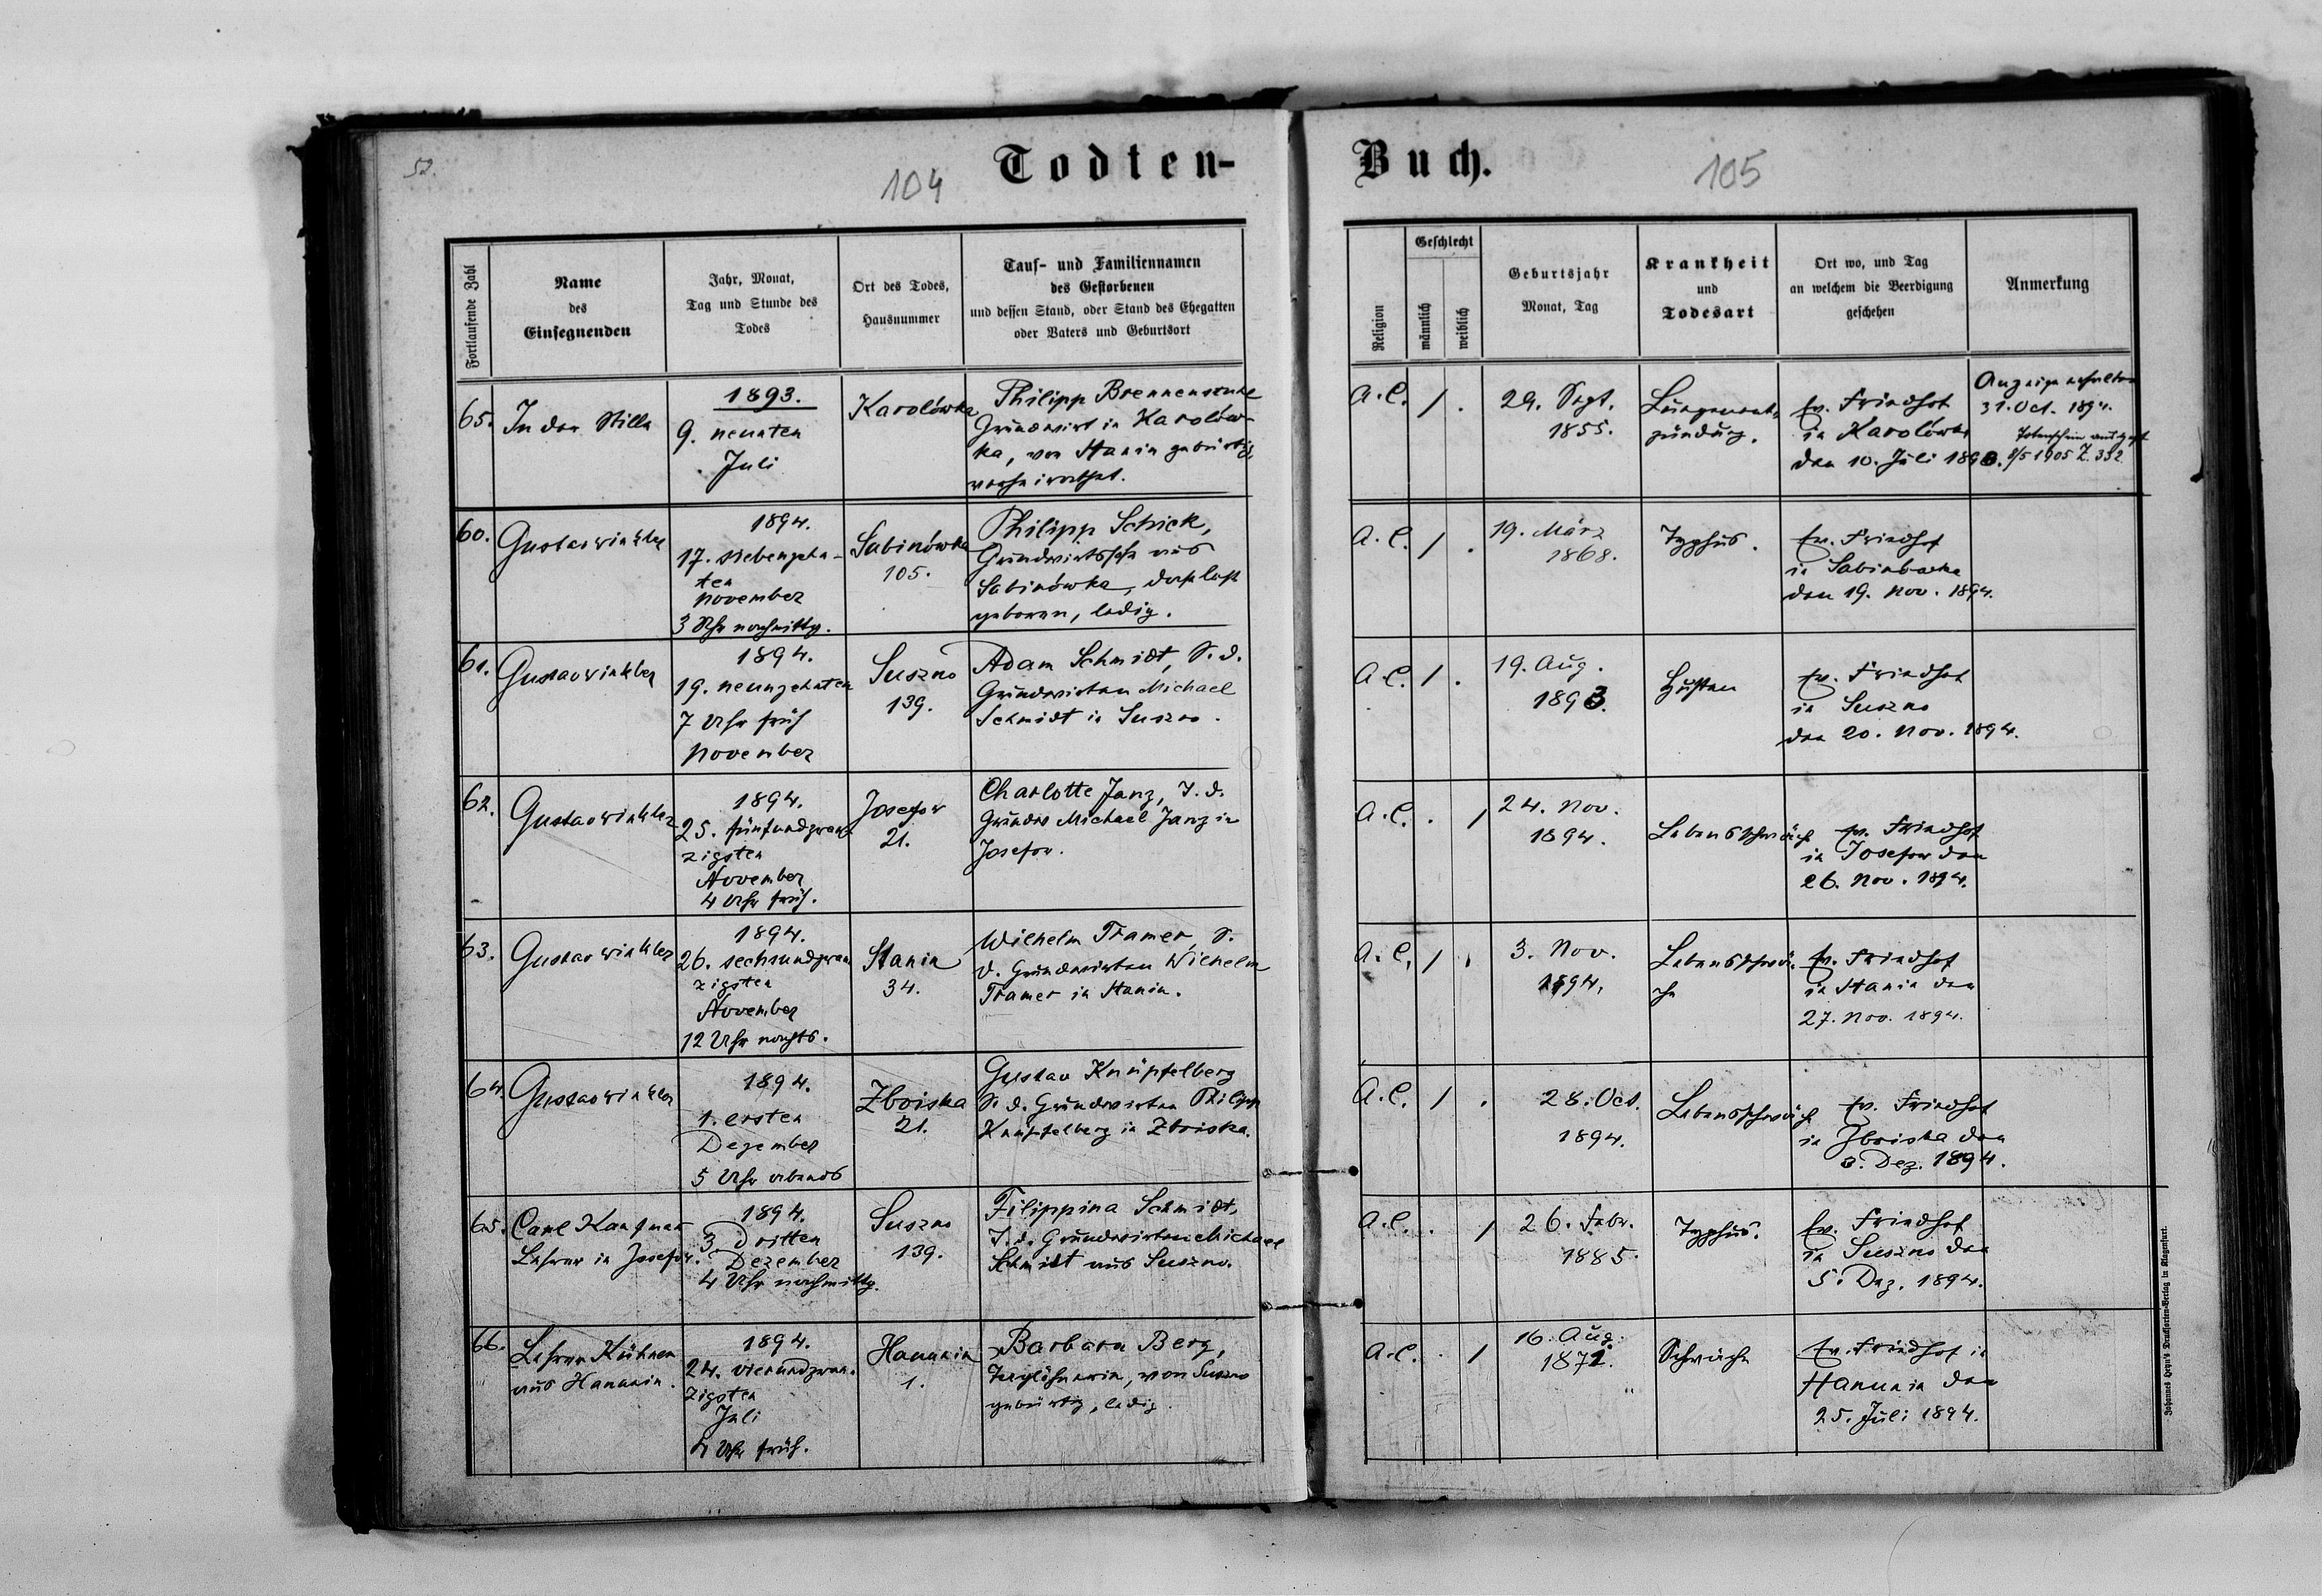 52.
104
Todten-
Buch.
105
Fortlaufende Zahl
Name
des
Einsegnenden
Jahr, Monat,
Tag und Stunde des
Todes
Ort des Todes,
Hausnummer
Tauf- und Familiennamen
des Gestorbenen
und dessen Stand, oder Stand des Ehegatten
oder Vaters und Geburtsort
Religion
Geschlecht
männlich
weiblich
Geburtsjahr
Monat, Tag
Krankheit
und
Todesart
Ort wo, und Tag
an welchem die Beerdigung
geschehen
Anmerkung
65.
In der Stille
1893.
9. neunten
Juli
Karolówka
Philipp
Grundwirt in Karolów-
ka, von Stanin gebürtig,
verheirathet.
A.C.
/ .
29. Sept.
1855.
Lungenent-
zündung.
Ev. Friedhof
in Karolówka
den 10. Juli 1893.
Anzeige erhalten
31. Oct. 1894.
Totenschein ausgest
8/5 1905 Z. 332
60.
Gustav Winkler
1894.
17. siebenzehn-
ten
November
3 Uhr nachmittg.
Sabinówka
105.
Philipp Schick,
Grundwirtssohn aus
Sabinówka, daselbst
geboren, ledig.
A.C.
/ .
19. März
1868.
Typhus.
Ev. Friedhof
in Sabinówka
den 19. Nov. 1894.
61.
Gustav Winkler
1894.
19. neunzehnten
7 Uhr früh
November
Suszno
139.
Adam Schmidt, S. d.
Grundwirten Michael
Schmidt in Suszno.
A.C.
/ .
19. Aug.
1893.
Husten
Ev. Friedhof
in Suszno
den 20. Nov. 1894.
62.
Gustav Winkler
1894.
25. fünfundzwan-
zigsten
November
4 Uhr früh.
Josefow
21.
Charlotte Janz, T. d.
Grundw Michael Janz in
Josefow.
A.C.
. /
24. Nov.
1894.
Lebensschwäche
Ev. Friedhof
in Josefow den
26. Nov. 1894.
63.
Gustav Winkler
1894.
26. sechsundzwan
zigsten
November
12 Uhr nachts.
Stanin
34.
Wilhelm Tramer, S.
d. Grundwirten Wilhelm
Tramer in Stanin.
A.C.
/ .
3. Nov.
1894.
Lebensschwä-
che
Ev. Friedhof
in Stanin den
27. Nov. 1894.
64.
Gustav Winkler
1894.
1. ersten
Dezember
5 Uhr abends
Zboiska
21.
Gustav Knüpfelberg
S. d. Grundwirten Philipp
Knüpfelberg in Zboiska.
A.C.
/ .
28. Oct.
1894.
Lebensschwäche
Ev. Friedhof
in Zboiska den
3. Dez. 1894.
65.
Carl Kaufman
Lehrer in Josefow.
1894.
3. dritten
Dezember
4 Uhr nachmittg.
Suszno
139.
Filippina Schmidt,
T. d. Grundwirten Michael
Schmidt aus Suszno.
A.C.
. /
26. Febr.
1885.
Typhus.
Ev. Friedhof
in Suszno den
5. Dez. 1894.
66.
Lehrer Kühner
aus Hanunin.
1894.
24. vierundzwan-
zigsten
Juli
4 Uhr früh.
Hanunin
1.
Barbara Berg,
Taglöhnerin, von Suszno
gebürtig, ledig.
A.C.
. /
16. Aug.
1871.
Schwäche
Ev. Friedhof in
Hanunin den
25. Juli 1894.
Johannes Heyn's Drucksorten-Verlag in Klagenfurt.